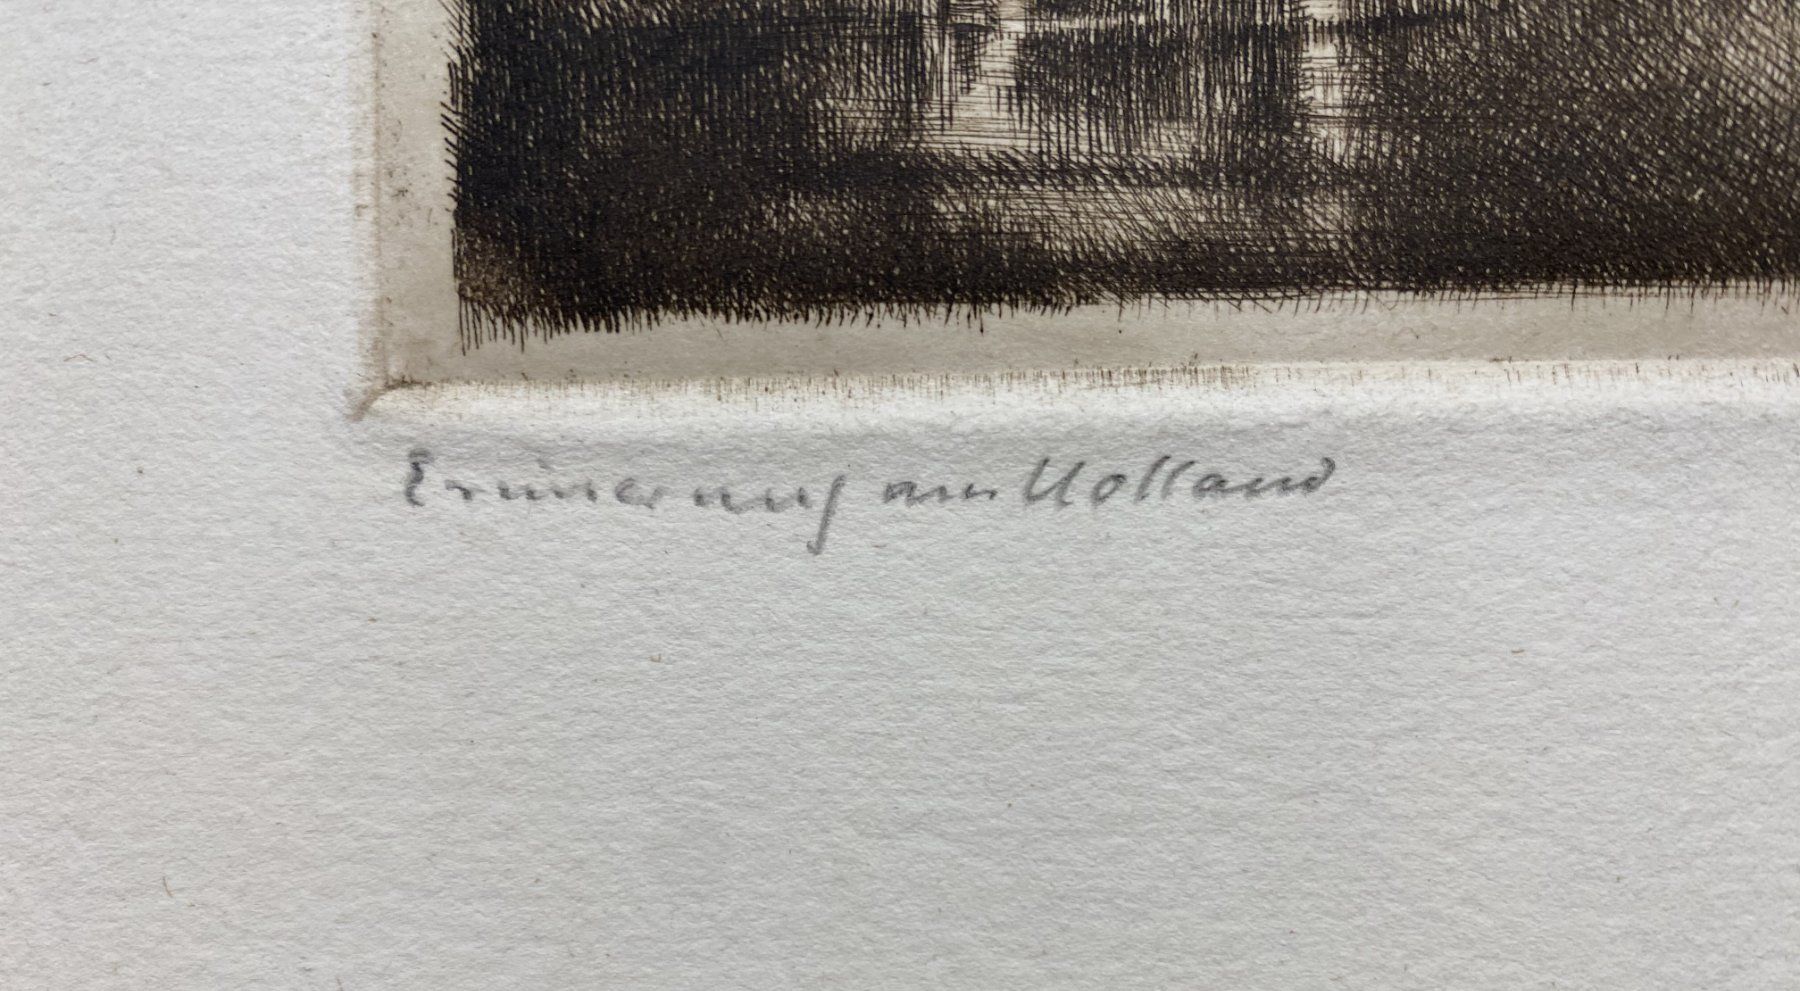 Erinnerung an Holland